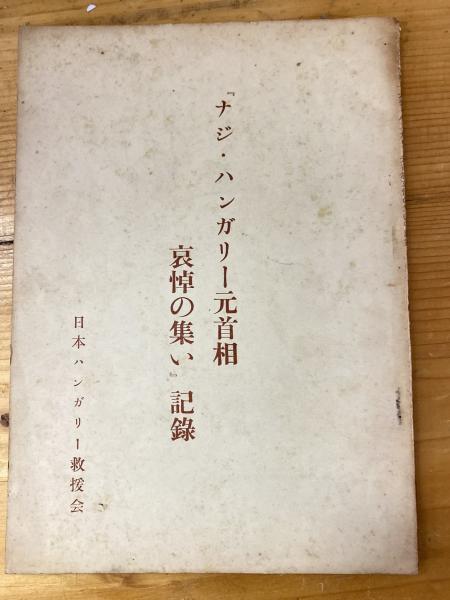 『ナジ・ハンガリー元首相
哀悼の集い』記錄
日本ハンガリー救援会